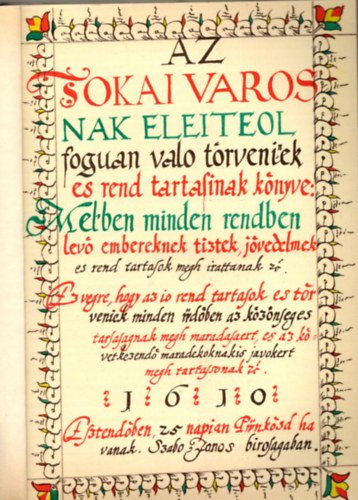 AZ
TOKAI VAROS
NAK ELEITEOL
foguan valo törveniek
es rend tartasinak könyve:
Melben minden rendben
levö embereknek tiztek, jövedelmek
es rend tartasok megh irattanak
Az vegre, hogy az io rend tartasok es tör
veniek minden üdöben az közönseges
tarsasagnak megh maradasaert, es az kö
vetkezendö maradekoknakis javokert
megh tartassonak
1610
Esztendöben, 25 napian Pünkösd ha
vanak. Szabo Janos birosagaban.